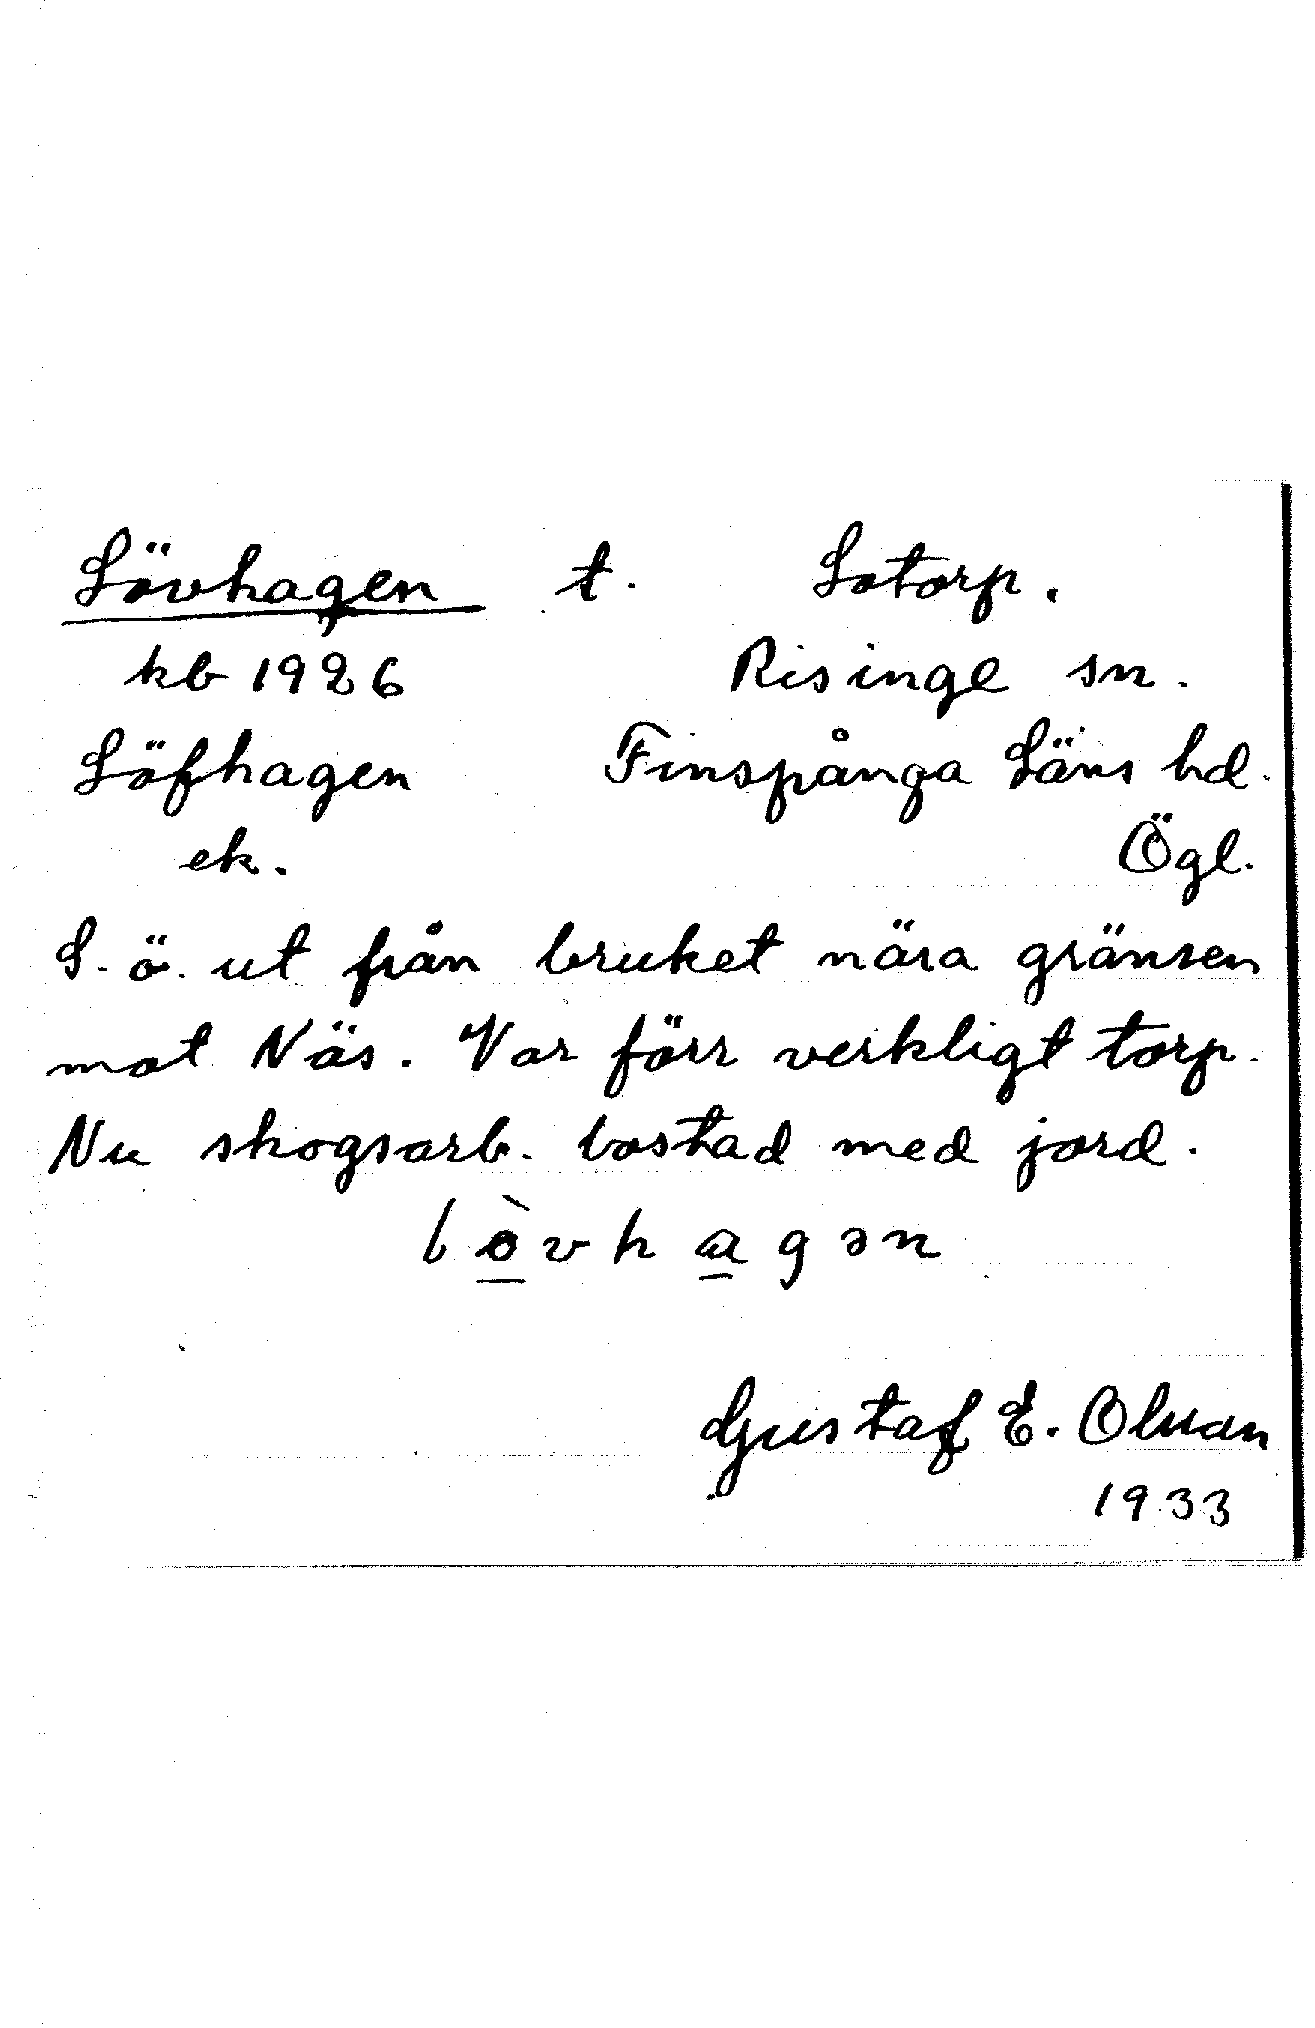 Lövhagen t. Lotorp.
kb 1926 Risinge sn.
Löfhagen Finspånga Läns hd.
ek. Ögl.
S. ö. ut från bruket nära gränsen
mot Näs. Var förr verkligt torp.
Nu skogsarb. bostad med jord.
lòvhagən
Gustaf E. Olsson
1933